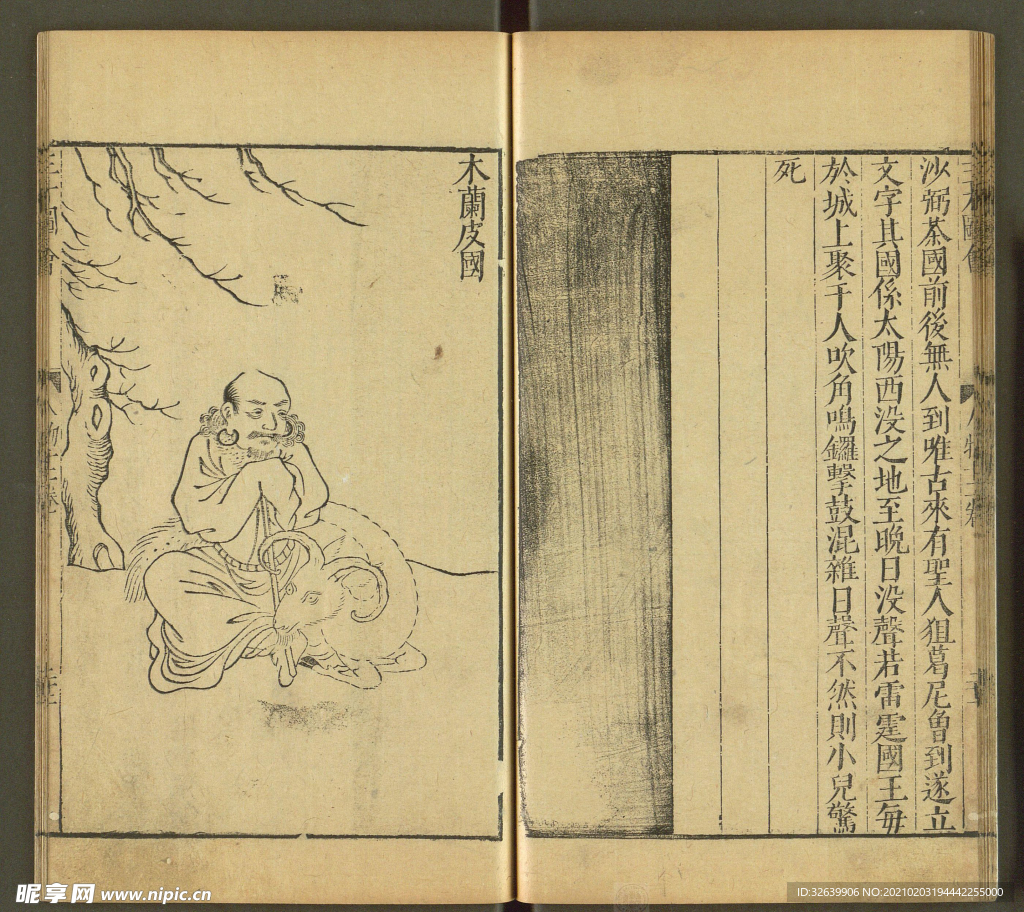 三才圖會
沙弼茶國前後無人到唯古來有聖人狙葛尼魯到遂立
文字其國係太陽西没之地至晩日没聲若雷霆國王每
於城上聚千人吹角鳴鑼擊鼓混雜日聲不然則小兒驚
死
木蘭皮國
昵享网 www.nipic.cn
ID:32639906 NO:20210203194442255000